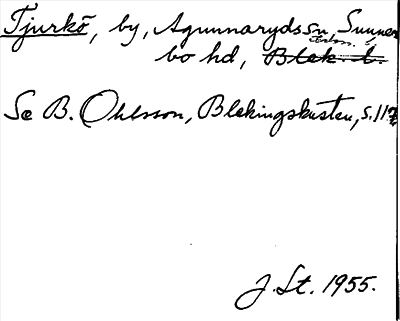 Tjurkö, by, Agunnaryds sn, Sunner
bo hd, Blek. l.
Se B. Ohlsson, Blekingskusten, s. 117
J. St. 1955.